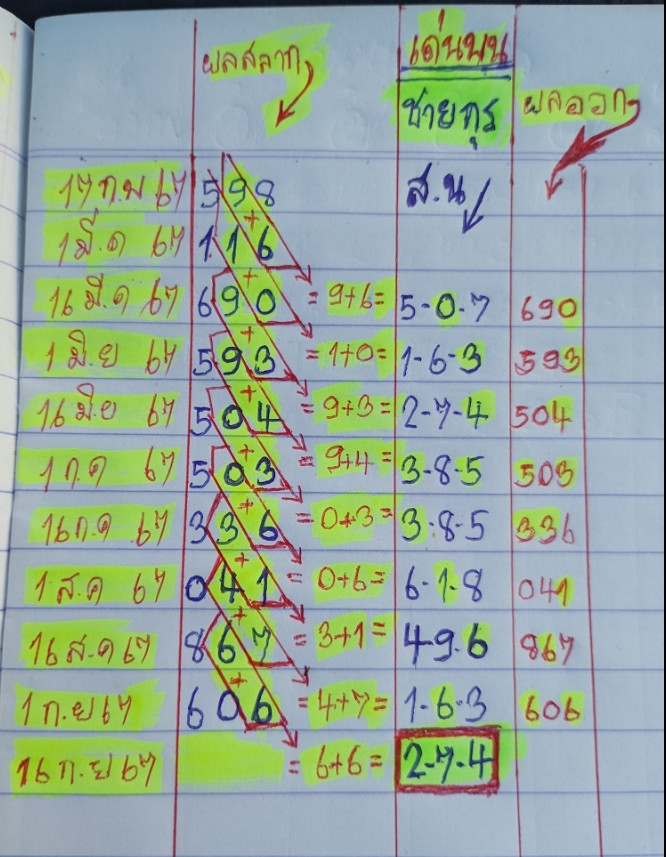 ผลสลาก เด่นบน
ชายกุ ผลออก
17 ก.พ 67 598 ส.น
1 มี.ค 67 116
16 มี.ค 67 690 = 9+6= 5-0-7 690
1 มิ.ย 67 593 = 1+0= 1-6-3 593
16 มิ.ย 67 504 = 9+3= 2-7-4 504
1 ก.ค 67 503 = 9+4= 3-8-5 503
16 ก.ค 67 336 = 0+3= 3-8-5 336
1 ส.ค 67 041 = 0+6= 6-1-8 041
16 ส.ค 67 867 = 3+1= 4-9-6 867
1 ก.ย 67 606 = 4+7= 1-6-3 606
16 ก.ย 67 = 6+6= 2-7-4